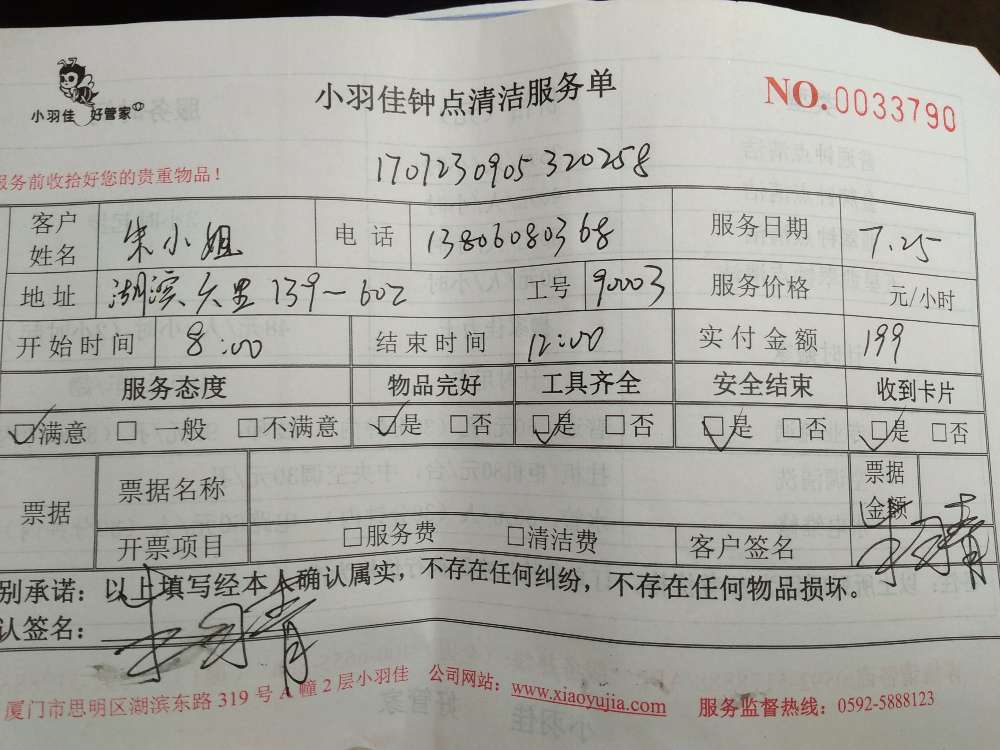 小羽佳 好管家
小羽佳钟点清洁服务单
NO.0033790
1707230905320258
服务前收拾好您的贵重物品！
客户姓名 朱小姐 电话 13806080368 服务日期 7.25
地址 湖滨六里139-602 工号 90003 服务价格 元/小时
开始时间 8:00 结束时间 12:00 实付金额 199
服务态度 物品完好 工具齐全 安全结束 收到卡片
☑满意 □一般 □不满意 ☑是 □否 ☑是 □否 ☑是 □否 ☑是 □否
票据 票据名称 票据金额
开票项目 □服务费 □清洁费 客户签名
别承诺：以上填写经本人确认属实，不存在任何纠纷，不存在任何物品损坏。
认签名：
厦门市思明区湖滨东路319号A幢2层小羽佳 公司网站：www.xiaoyujia.com 服务监督热线：0592-5888123